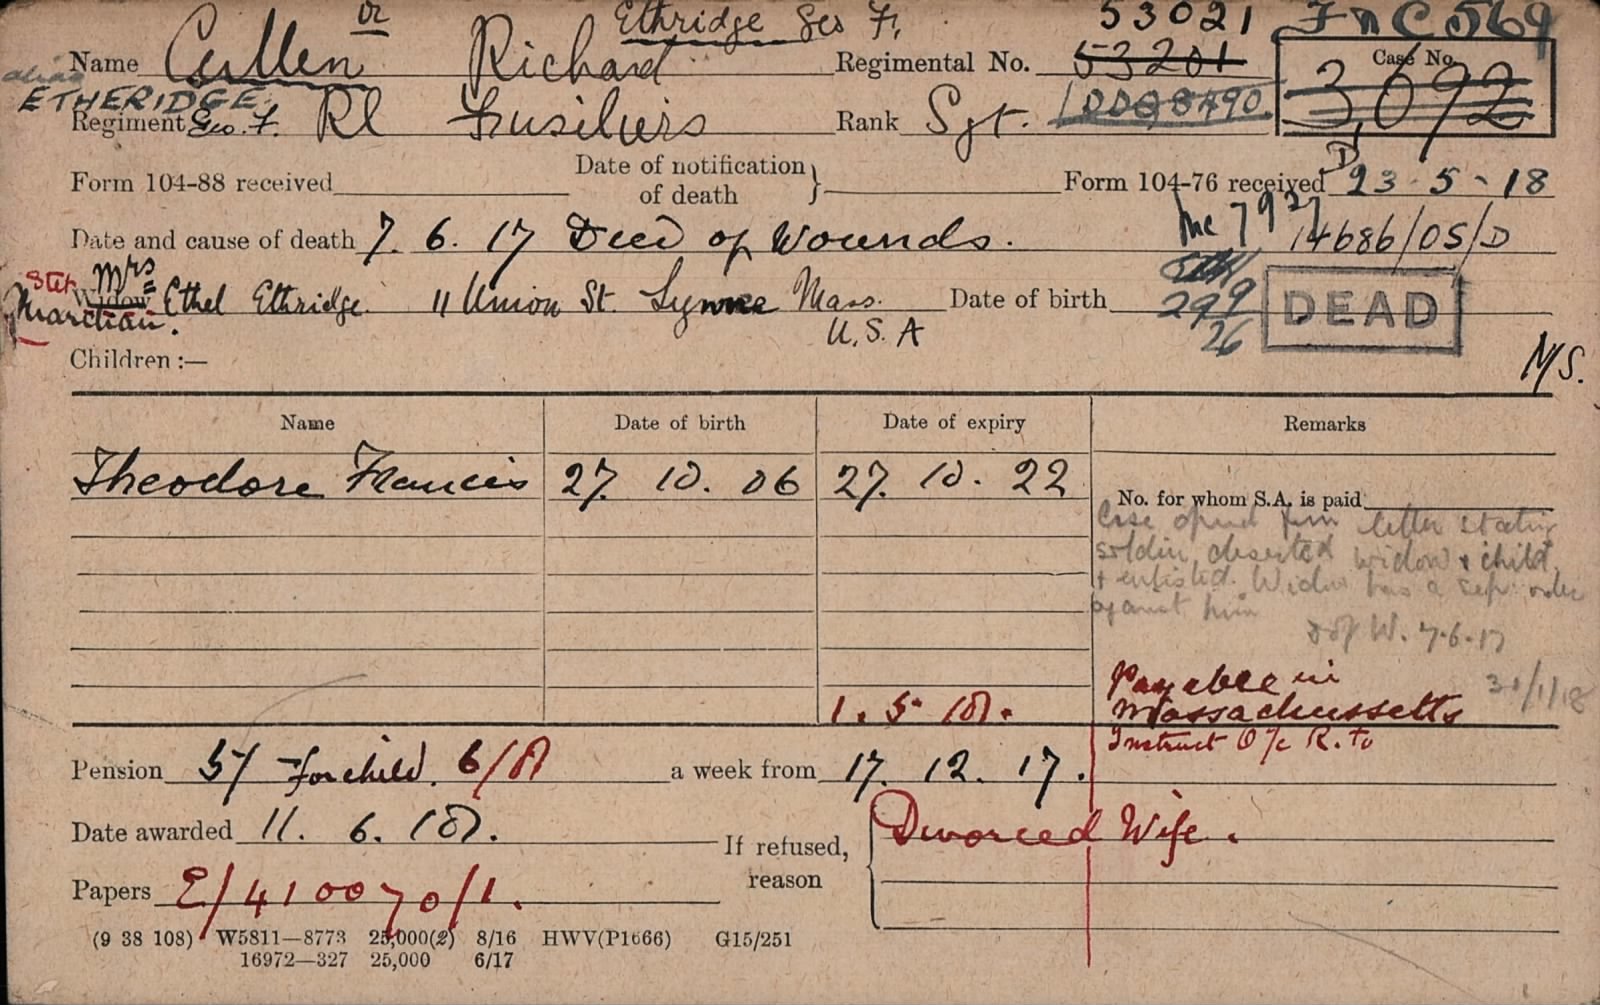 or Ethridge Geo F. 53021 F n C 569
Name Cullen Richard Regimental No. 53201 Case No.
alias ETHERIDGE Geo. F. 3,092
Regiment Rl Fusiliers Rank Sgt. 1DDQ8490
Form 104-88 received Date of notification of death } Form 104-76 received D 23-5-18
Date and cause of death 7. 6. 17 Died of Wounds. 14686/OS/D
Stet Mrs
Widow Ethel Ethridge. 11 Union St. Lynne Mass. Date of birth 29 9 DEAD
Guardian. U.S.A 26
Children :— N/S.
Name Date of birth Date of expiry Remarks
Theodore Francis 27. 10. 06 27. 10. 22
No. for whom S.A. is paid
Case opened from letter stating
soldier deserted widow & child
& enlisted. Widow has a sep: order
against him
D of W. 7.6.17
31/1/18
Payable in
1. 5. 18. Massachussetts
Instruct O/c R. to
Pension 5/- for child. 6/8 a week from 17. 12. 17.
Date awarded 11. 6. 18. If refused, reason Divorced Wife.
Papers E/410070/1.
(9 38 108) W5811—8773 25,000(2) 8/16 HWV(P1666) G15/251
16972—327 25,000 6/17